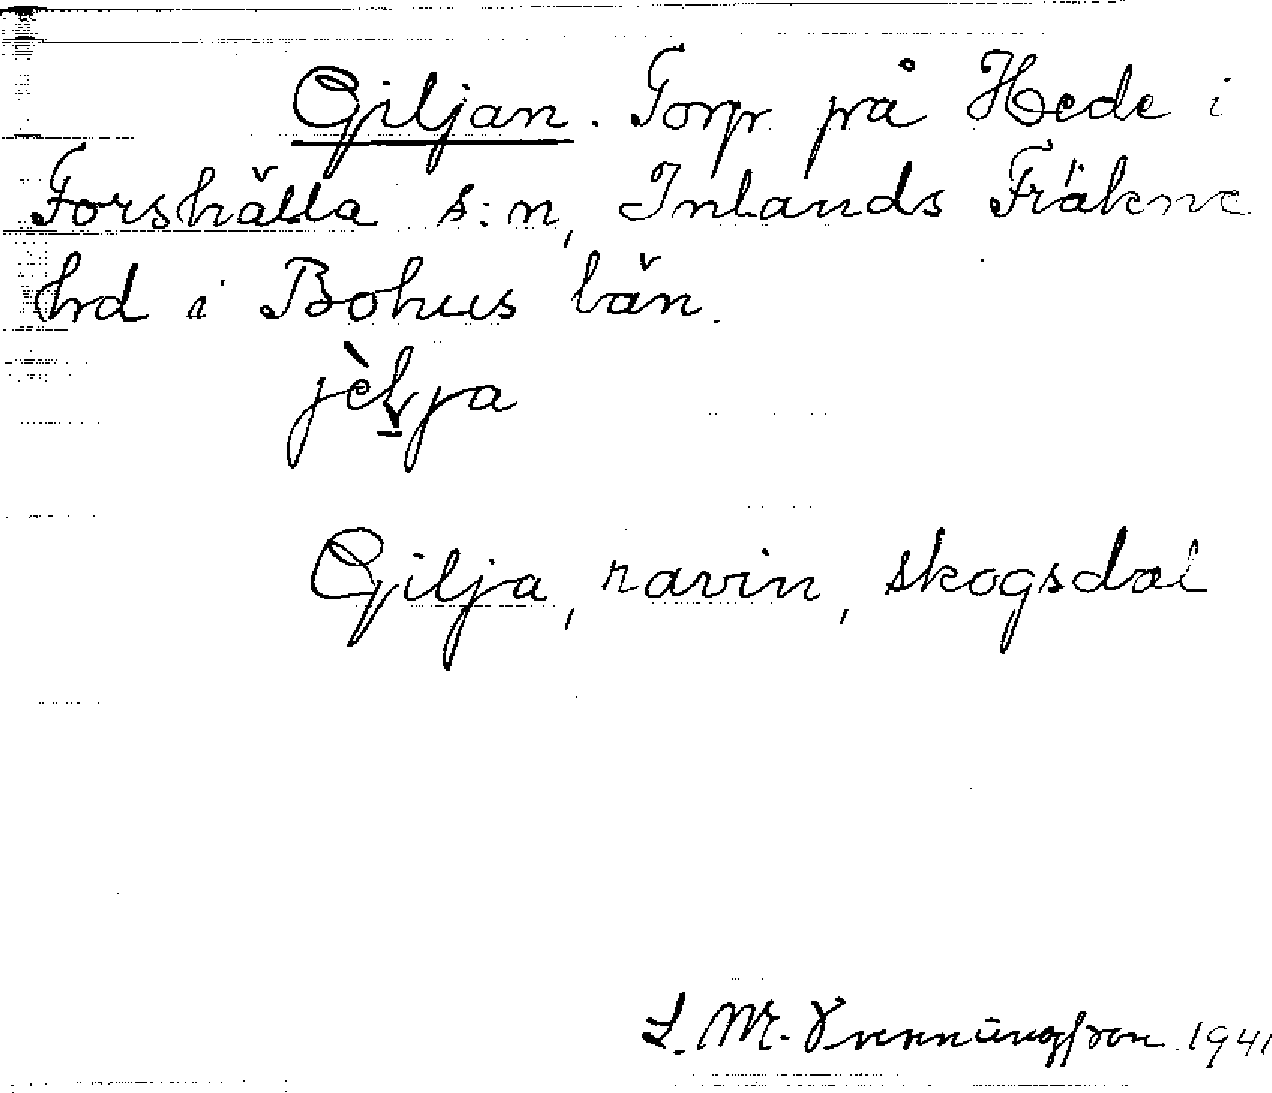 Giljan. Torp på Hede i
Forshälla s:n, Inlands Fräkne
hrd i Bohus län.
jèlja
Gilja, ravin, skogsdal
1941